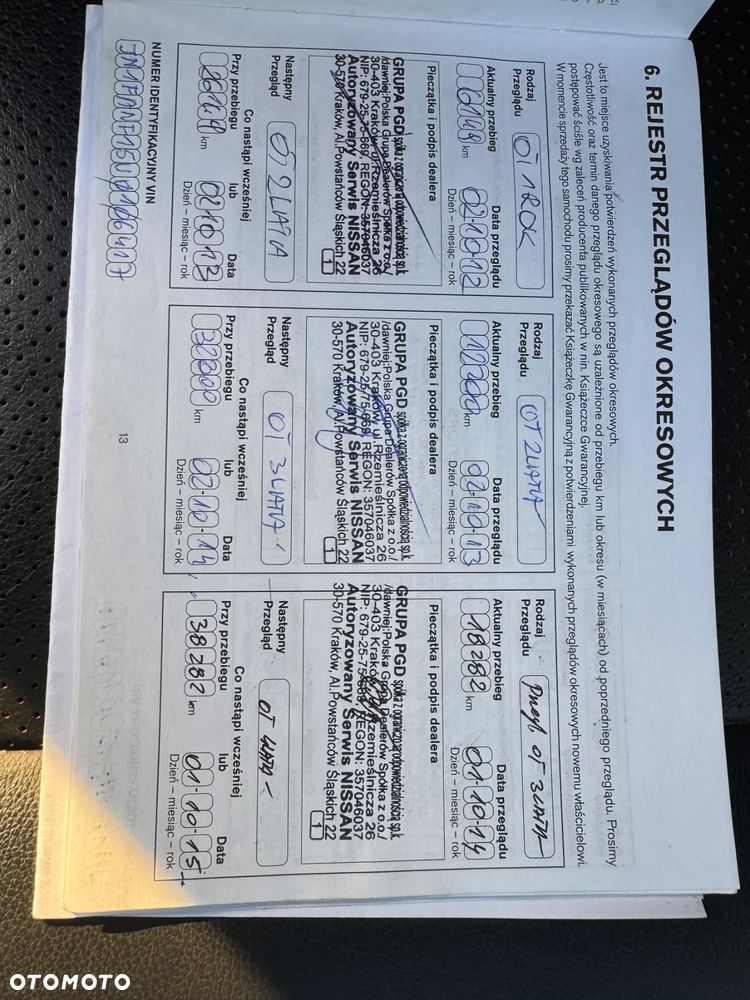 6. REJESTR PRZEGLĄDÓW OKRESOWYCH
Jest to miejsce uzyskiwania potwierdzeń wykonanych przeglądów okresowych.
Częstotliwość oraz termin danego przeglądu okresowego są uzależnione od przebiegu km lub okresu (w miesiącach) od poprzedniego przeglądu. Prosimy
postępować ściśle wg zaleceń producenta publikowanych w nin. Książeczce Gwarancyjnej.
W momencie sprzedaży tego samochodu prosimy przekazać Książeczkę Gwarancyjną z potwierdzeniami wykonanych przeglądów okresowych nowemu właścicielowi.
Rodzaj
Przeglądu
OT 1 ROK
Aktualny przebieg
Data przeglądu
km
02-10-12
Dzień – miesiąc – rok
Pieczątka i podpis dealera
GRUPA PGD spółka z ograniczoną odpowiedzialnością sp.k.
/dawniej:Polska Grupa Dealerów Spółka z o.o./
30-403 Kraków, ul.Rzemieślnicza 26
NIP: 679-25-75-669, REGON: 357046037
Autoryzowany Serwis NISSAN
30-570 Kraków, Al.Powstańców Śląskich 22
1
Następny
Przegląd
OT 2 LATA
Co nastąpi wcześniej
Przy przebiegu
lub
Data
26149 km
02-10-13
Dzień – miesiąc – rok
Rodzaj
Przeglądu
OT 2 LATA
Aktualny przebieg
Data przeglądu
12300 km
02-10-13
Dzień – miesiąc – rok
Pieczątka i podpis dealera
GRUPA PGD spółka z ograniczoną odpowiedzialnością sp.k.
/dawniej:Polska Grupa Dealerów Spółka z o.o./
30-403 Kraków, ul.Rzemieślnicza 26
NIP: 679-25-75-669, REGON: 357046037
Autoryzowany Serwis NISSAN
30-570 Kraków, Al.Powstańców Śląskich 22
1
Następny
Przegląd
OT 3 LATA
Co nastąpi wcześniej
Przy przebiegu
lub
Data
32300 km
02-10-14
Dzień – miesiąc – rok
Rodzaj
Przeglądu
Przegl. OT 3 LATA
Aktualny przebieg
Data przeglądu
18282 km
01-10-14
Dzień – miesiąc – rok
Pieczątka i podpis dealera
GRUPA PGD spółka z ograniczoną odpowiedzialnością sp.k.
/dawniej:Polska Grupa Dealerów Spółka z o.o./
30-403 Kraków, ul.Rzemieślnicza 26
NIP: 679-25-75-669, REGON: 357046037
Autoryzowany Serwis NISSAN
30-570 Kraków, Al.Powstańców Śląskich 22
1
Następny
Przegląd
OT 4 LATA
Co nastąpi wcześniej
Przy przebiegu
lub
Data
38282 km
01-10-15
Dzień – miesiąc – rok
NUMER IDENTYFIKACYJNY VIN
13
OTOMOTO